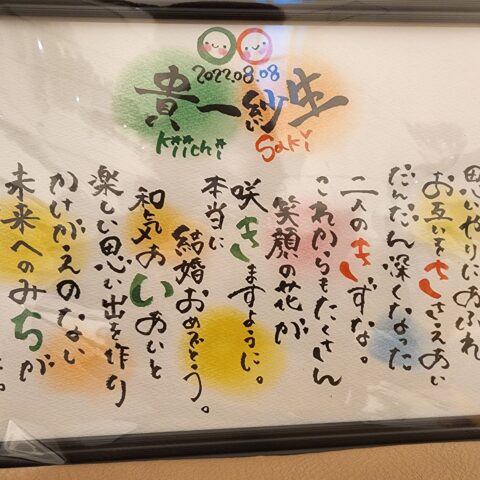 2022.08.08
貴一 紗生
Kiichi Saki
思いやりにあふれ
お互いをささえあい
だんだん深くなった
二人のきずな。
これからもたくさん
笑顔の花が
咲きますように。
本当に
結婚おめでとう。
和気あいあいと
楽しい思い出を作り
かけがえのない
未来へのみちが